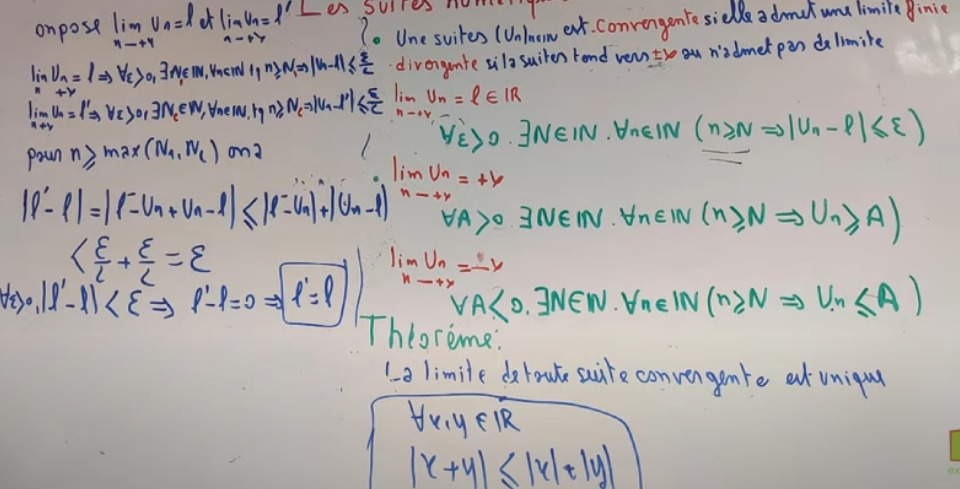 Les suites numériq
on pose lim Un=l et lim Un=l'
n→+∞ n→+∞
lim Un=l ⇒ ∀ε>0, ∃N₁∈IN, ∀n∈IN, tq n≥N₁⇒|Un-l|≤ε/2
n +∞
lim Un=l' ⇒ ∀ε>0, ∃N₂∈IN, ∀n∈IN, tq n≥N₂⇒|Un-l'|≤ε/2
n→+∞
pour n≥max(N₁,N₂) on a
|l'-l|=|l'-Un+Un-l|≤|l'-Un|+|Un-l|
<ε/2+ε/2=ε
∀ε>0, |l'-l|<ε ⇒ l'-l=0 ⇒ l'=l
• Une suites (Un)n∈IN est Convergente si elle admet une limite finie
- divergente si la suites tend vers ±∞ ou n'admet pas de limite
lim Un = l ∈ IR
n→+∞
∀ε>0. ∃N∈IN. ∀n∈IN (n≥N ⇒ |Un-l|≤ε)
• lim Un = +∞
n→+∞
∀A>0. ∃N∈IN. ∀n∈IN (n≥N ⇒ Un≥A)
lim Un = -∞
n→+∞
∀A<0. ∃N∈IN. ∀n∈IN (n≥N ⇒ Un≤A)
Théoréme:
La limite de toute suite convergente est unique
∀x,y∈IR
|x+y|≤|x|+|y|